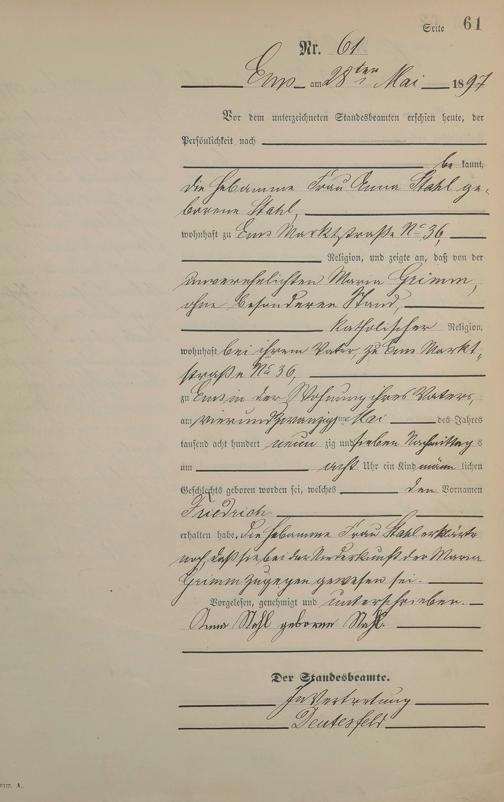 Seite 61
Nr. 61
Ems am 28ten Mai 1897
Vor dem unterzeichneten Standesbeamten erschien heute, der
Persönlichkeit nach
be kannt,
die Hebamme Frau Anna Stahl ge-
borene Stahl,
wohnhaft zu Ems Marktstraße No 36,
Religion, und zeigte an, daß von der
unverehelichten Maria Grimm,
ohne besonderen Stand,
katholischer Religion,
wohnhaft bei ihrem Vater, zu Ems Markt-
straße No 36,
zu Ems in der Wohnung ihres Vaters,
am vierundzwanzigsten Mai des Jahres
tausend acht hundert neun zig und sieben Nachmittag s
um acht Uhr ein Kind männ lichen
Geschlechts geboren worden sei, welches den Vornamen
Friedrich
erhalten habe. Die Hebamme Frau Stahl erklärte
noch, daß sie bei der Niederkunft der Maria
Grimm zugegen gewesen sei.
Vorgelesen, genehmigt und unterschrieben.
Anna Stahl geborne Stahl.
Der Standesbeamte.
In Vertretung